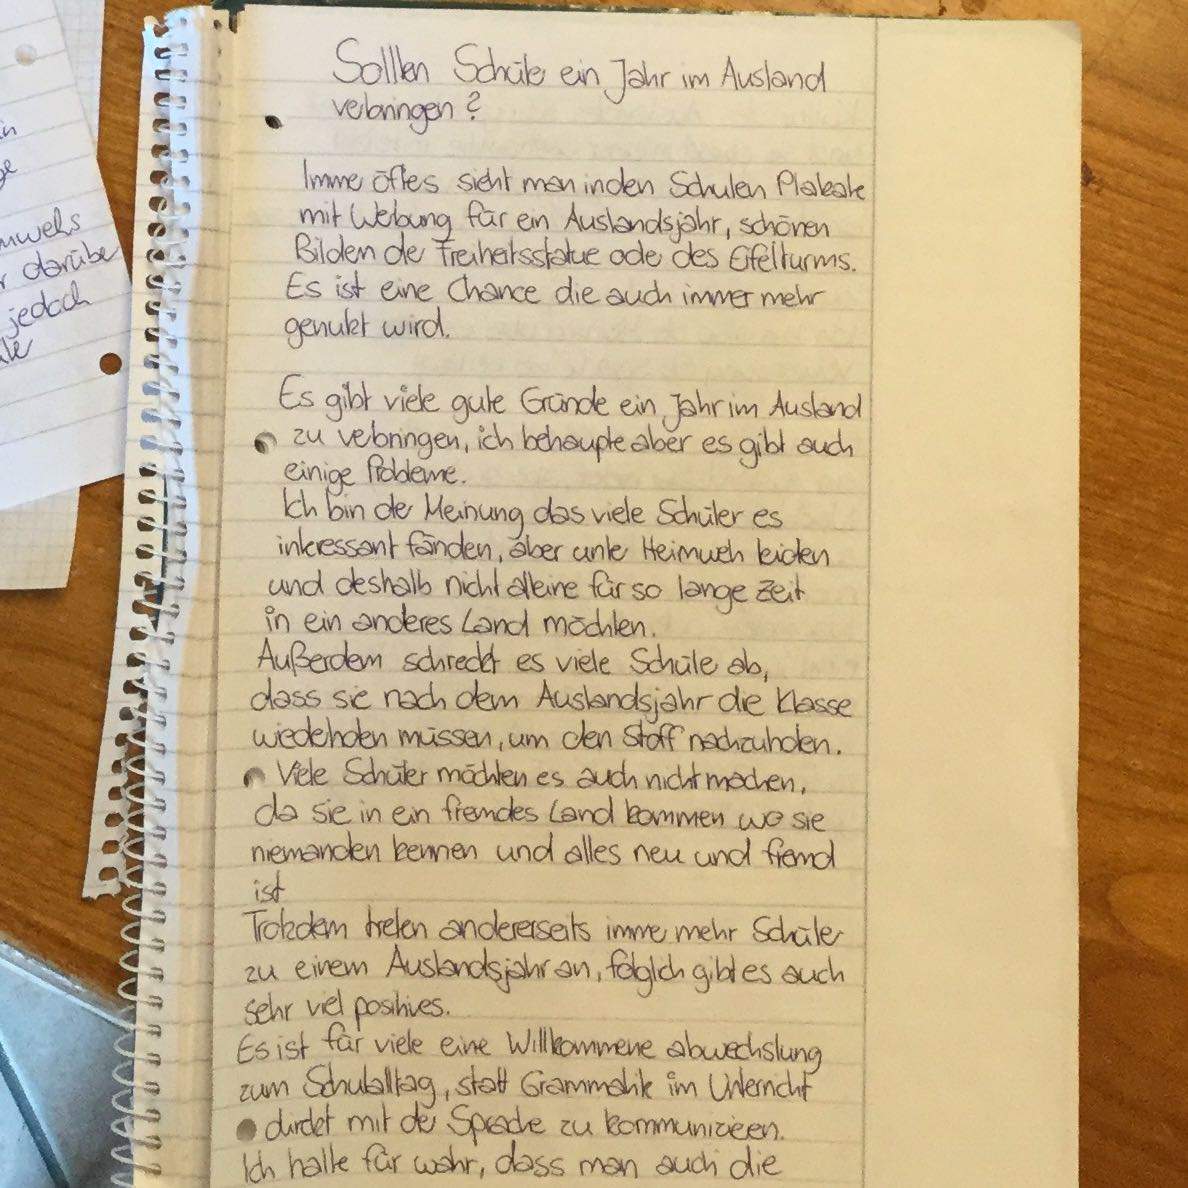 in
ge
nwehs
r darüber
jedoch
Sollten Schüler ein Jahr im Ausland
verbringen?
Immer öftes sieht man in den Schulen Plakate
mit Werbung für ein Auslandsjahr, schönen
Bilden der Freiheitsstatue oder des Eifelturms.
Es ist eine Chance die auch immer mehr
genutzt wird.
Es gibt viele gute Gründe ein Jahr im Ausland
zu verbringen, ich behaupte aber es gibt auch
einige Probleme.
Ich bin der Meinung das viele Schüler es
interessant fänden, aber unter Heimweh leiden
und deshalb nicht alleine für so lange Zeit
in ein anderes Land möchten.
Außerdem schreckt es viele Schüler ab,
dass sie nach dem Auslandsjahr die Klasse
wiederholen müssen, um den Stoff nachzuholen.
Viele Schüler möchten es auch nicht machen,
da sie in ein fremdes Land kommen wo sie
niemanden kennen und alles neu und fremd
ist
Trotzdem treten andererseits immer mehr Schüler
zu einem Auslandsjahr an, folglich gibt es auch
sehr viel positives.
Es ist für viele eine Willkommene abwechslung
zum Schulalltag, statt Grammatik im Unterricht
direkt mit der Sprache zu kommunizieren.
Ich halte für wahr, dass man auch die